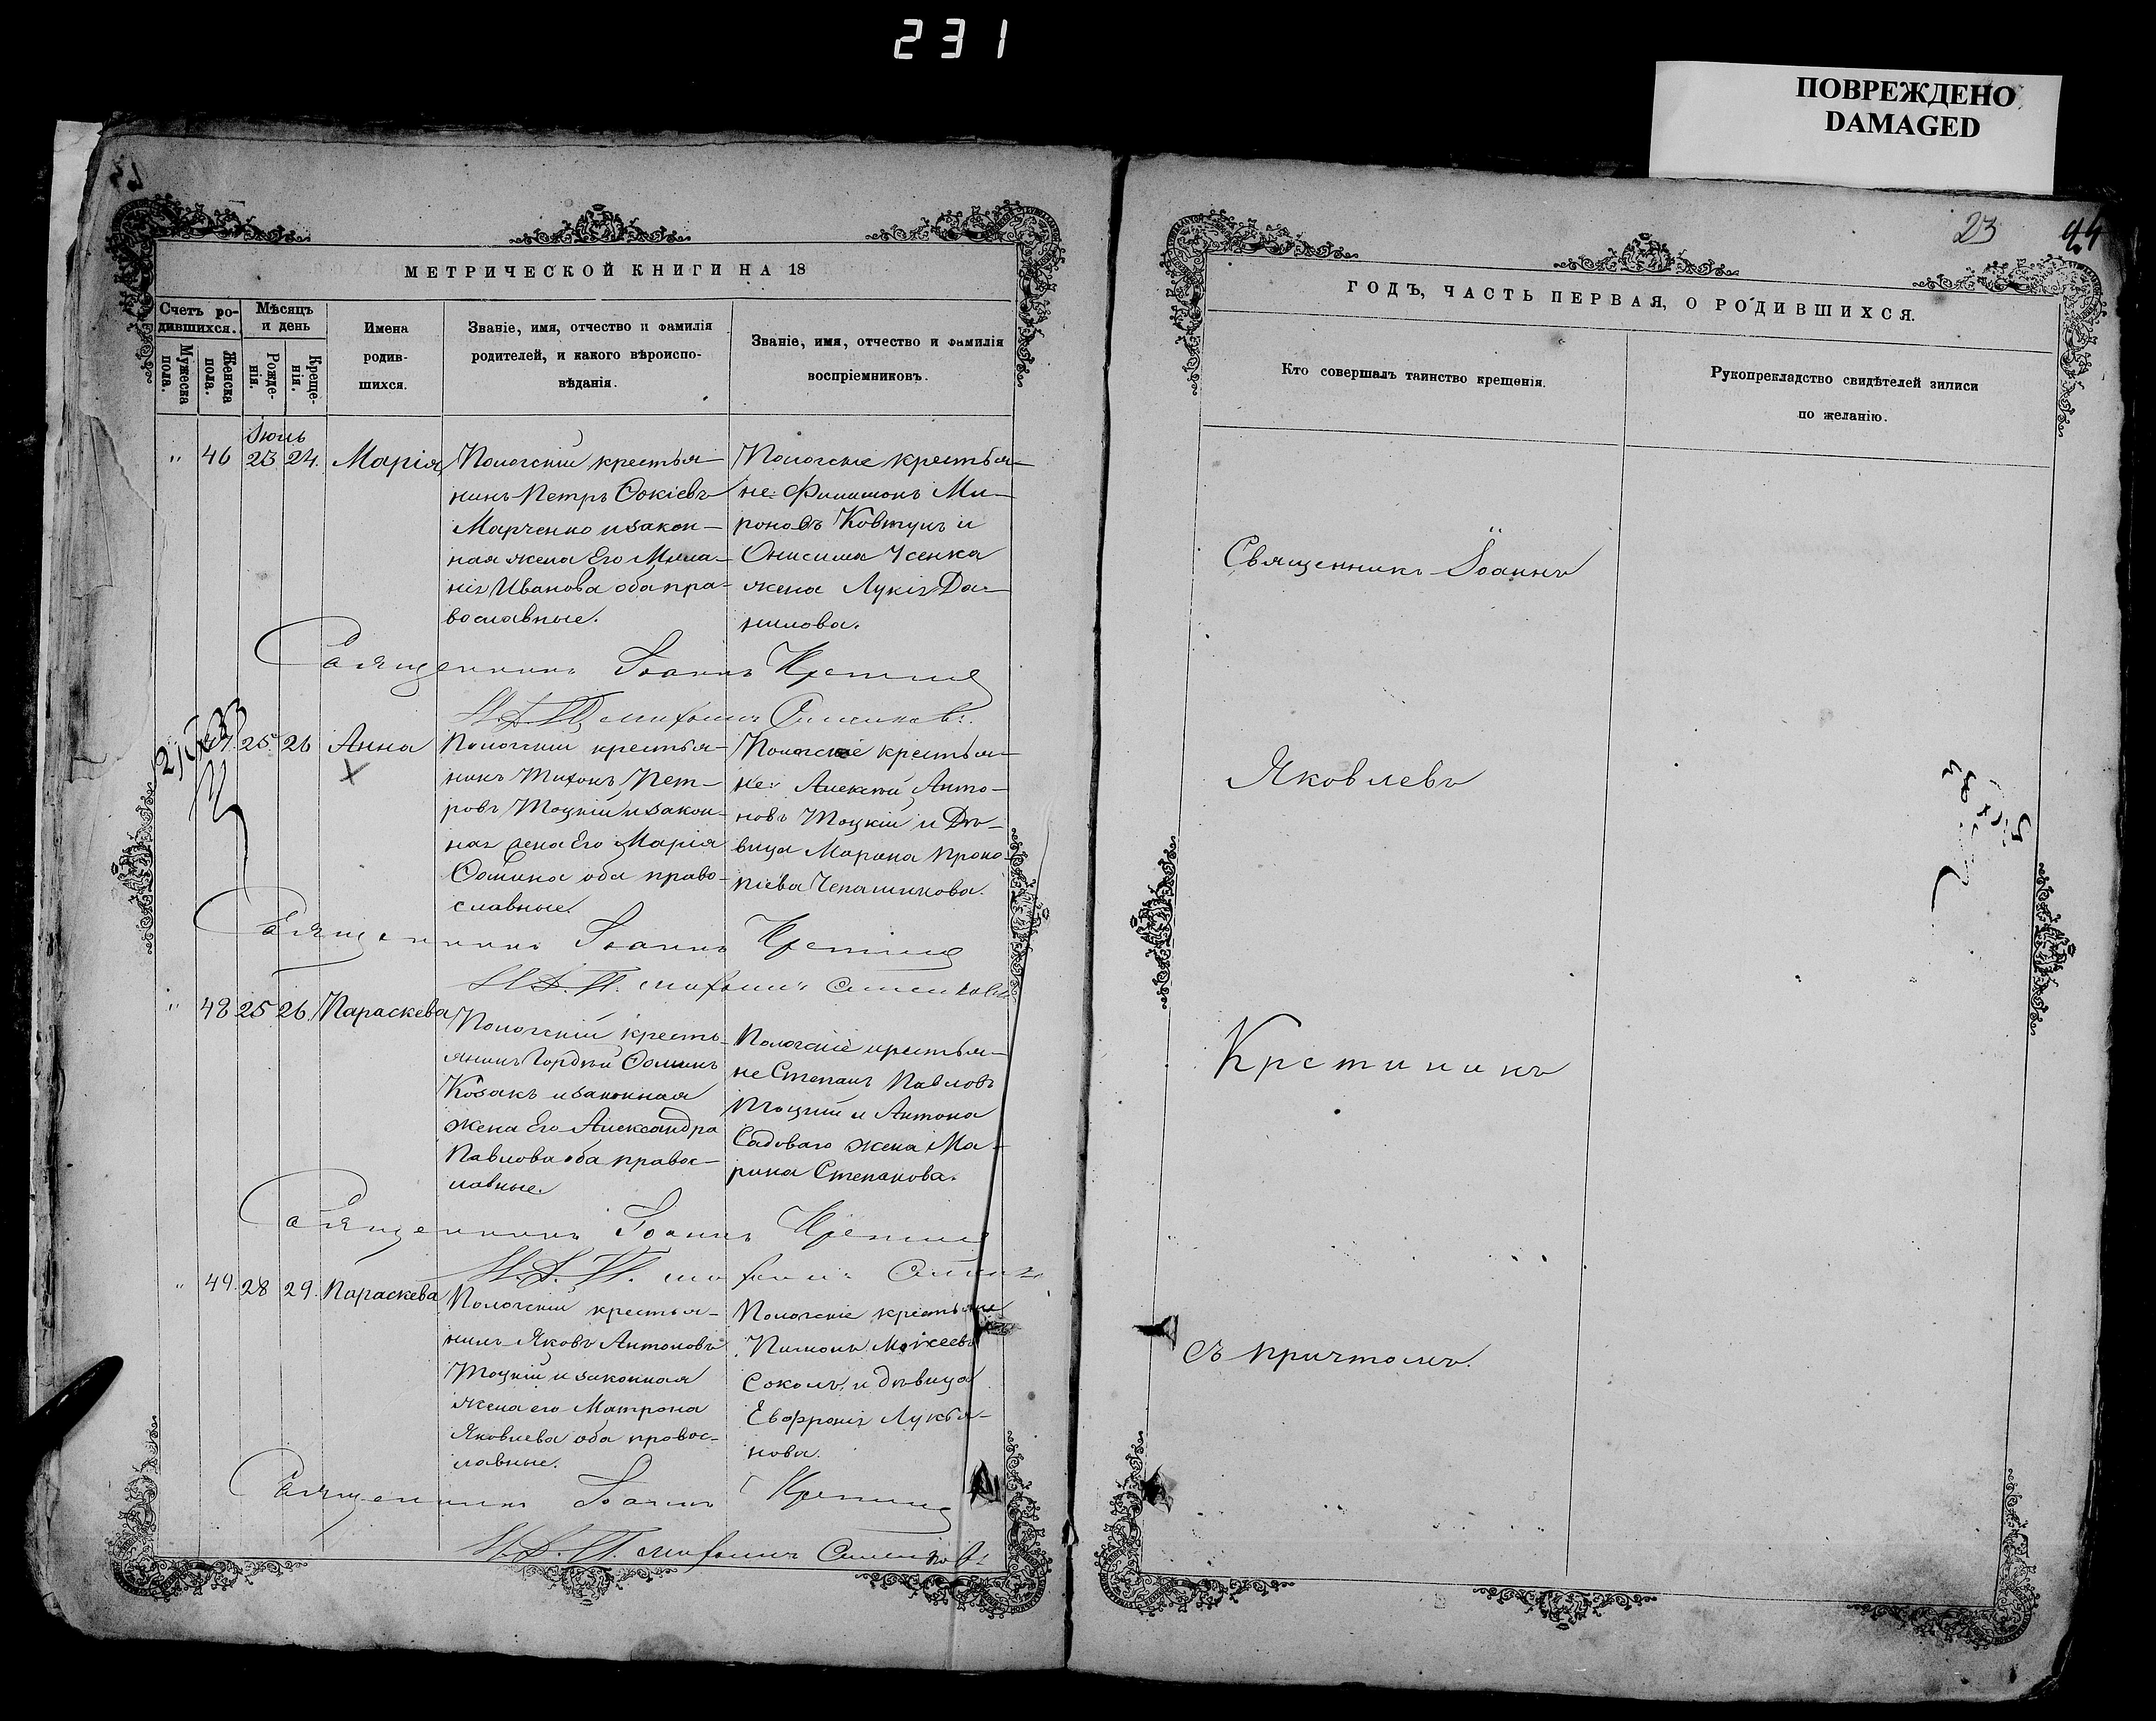 231
ПОВРЕЖДЕНО
DAMAGED
23
44
МЕТРИЧЕСКОЙ КНИГИ НА 18
Счетъ ро-
дившихся.
Мужеска
пола.
Женска
пола.
Мѣсяцъ
и день
Рожде-
нія.
Креще-
нія.
Имена
родив-
шихся.
Званіе, имя, отчество и фамилія
родителей, и какого вѣроиспо-
вѣданія.
Званіе, имя, отчество и фамилія
воспріемниковъ.
Іюль
" 46 23 24. Марія
Пологскій крестья-
нинъ Петръ Фокіевъ
Марченко и закон-
ная жена Его Мела-
нія Иванова оба пра-
вославные.
Пологскіе крестья-
не: Филимонъ Ми-
роновъ Ковтунъ и
Онисима Усенка
жена Лукія Да-
нилова.
Священникъ Іоаннъ
47. 25. 26 Анна
Пологскій крестья-
нинъ Тихонъ Пет-
ровъ Тоцкій и закон-
ная жена Его Марія
Фомина оба право-
славные.
Пологскіе крестья-
не: Алексѣй Анто-
новъ Тоцкій и Дѣ-
вица Марина Проко-
піева
Священникъ Іоаннъ
" 48 25 26. Параскева
Пологскій кресть-
янинъ Гордѣй Фоминъ
Козакъ и законная
жена Его Александра
Павлова оба правос-
лавные.
Пологскіе крестья-
не Степанъ Павловъ
Тоцкій и Антона
Садоваго жена Ма-
рина Степанова.
Священникъ Іоаннъ
" 49. 28 29. Параскева
Пологскій крестья-
нинъ Яковъ Антоновъ
Тоцкій и законная
жена его Матрона
Яковлева оба правос-
лавные.
Пологскіе крестьяне
Пимонъ Моисеевъ
Соколъ, и дѣвица
Евфронія Лукья-
нова.
Священникъ Іоаннъ
ГОДЪ, ЧАСТЬ ПЕРВАЯ, О РОДИВШИХСЯ.
Кто совершалъ таинство крещенія.
Рукоприкладство свидѣтелей записи
по желанію.
Священникъ Іоаннъ
Яковлевъ
Крстининъ
съ причтомъ.